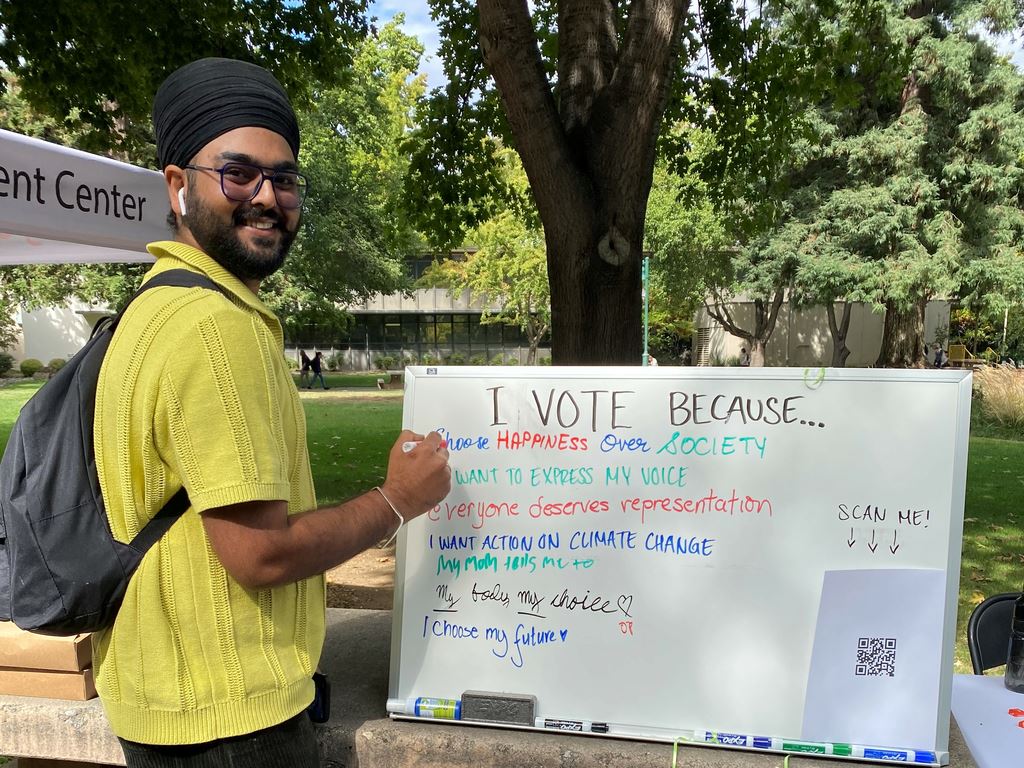 ent Center
I VOTE BECAUSE...
Choose HAPPINESS Over SOCIETY
WANT TO EXPRESS MY VOICE
everyone deserves representation
I WANT ACTION ON CLIMATE CHANGE
My Mom tells me to
My body, my choice♡
I choose my future♥
SCAN ME!
↓ ↓ ↓
EXPO
EXPO